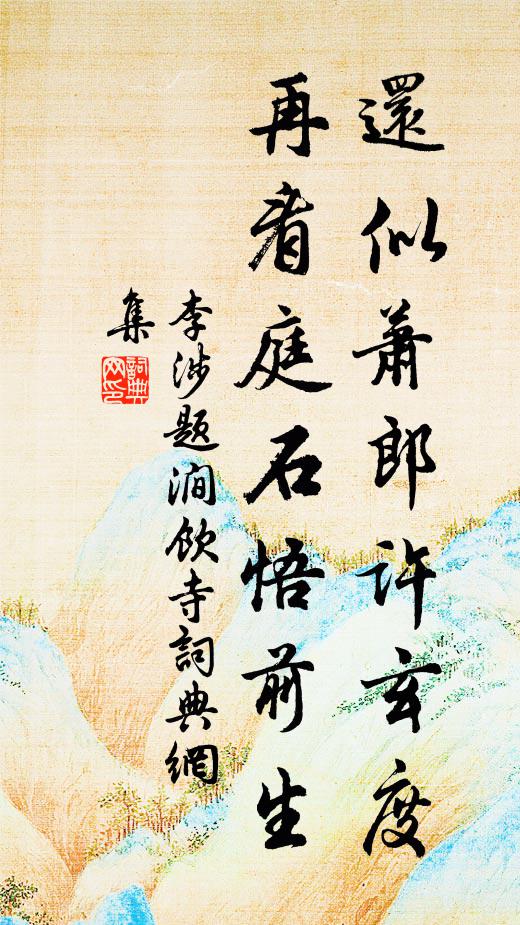 還似蕭郎許玄度
再看庭石悟前生
李涉題澗飲寺詞典網
集
詞典
网印